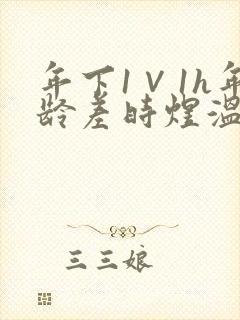 年下1V1h年
龄差时煌温
三三娘